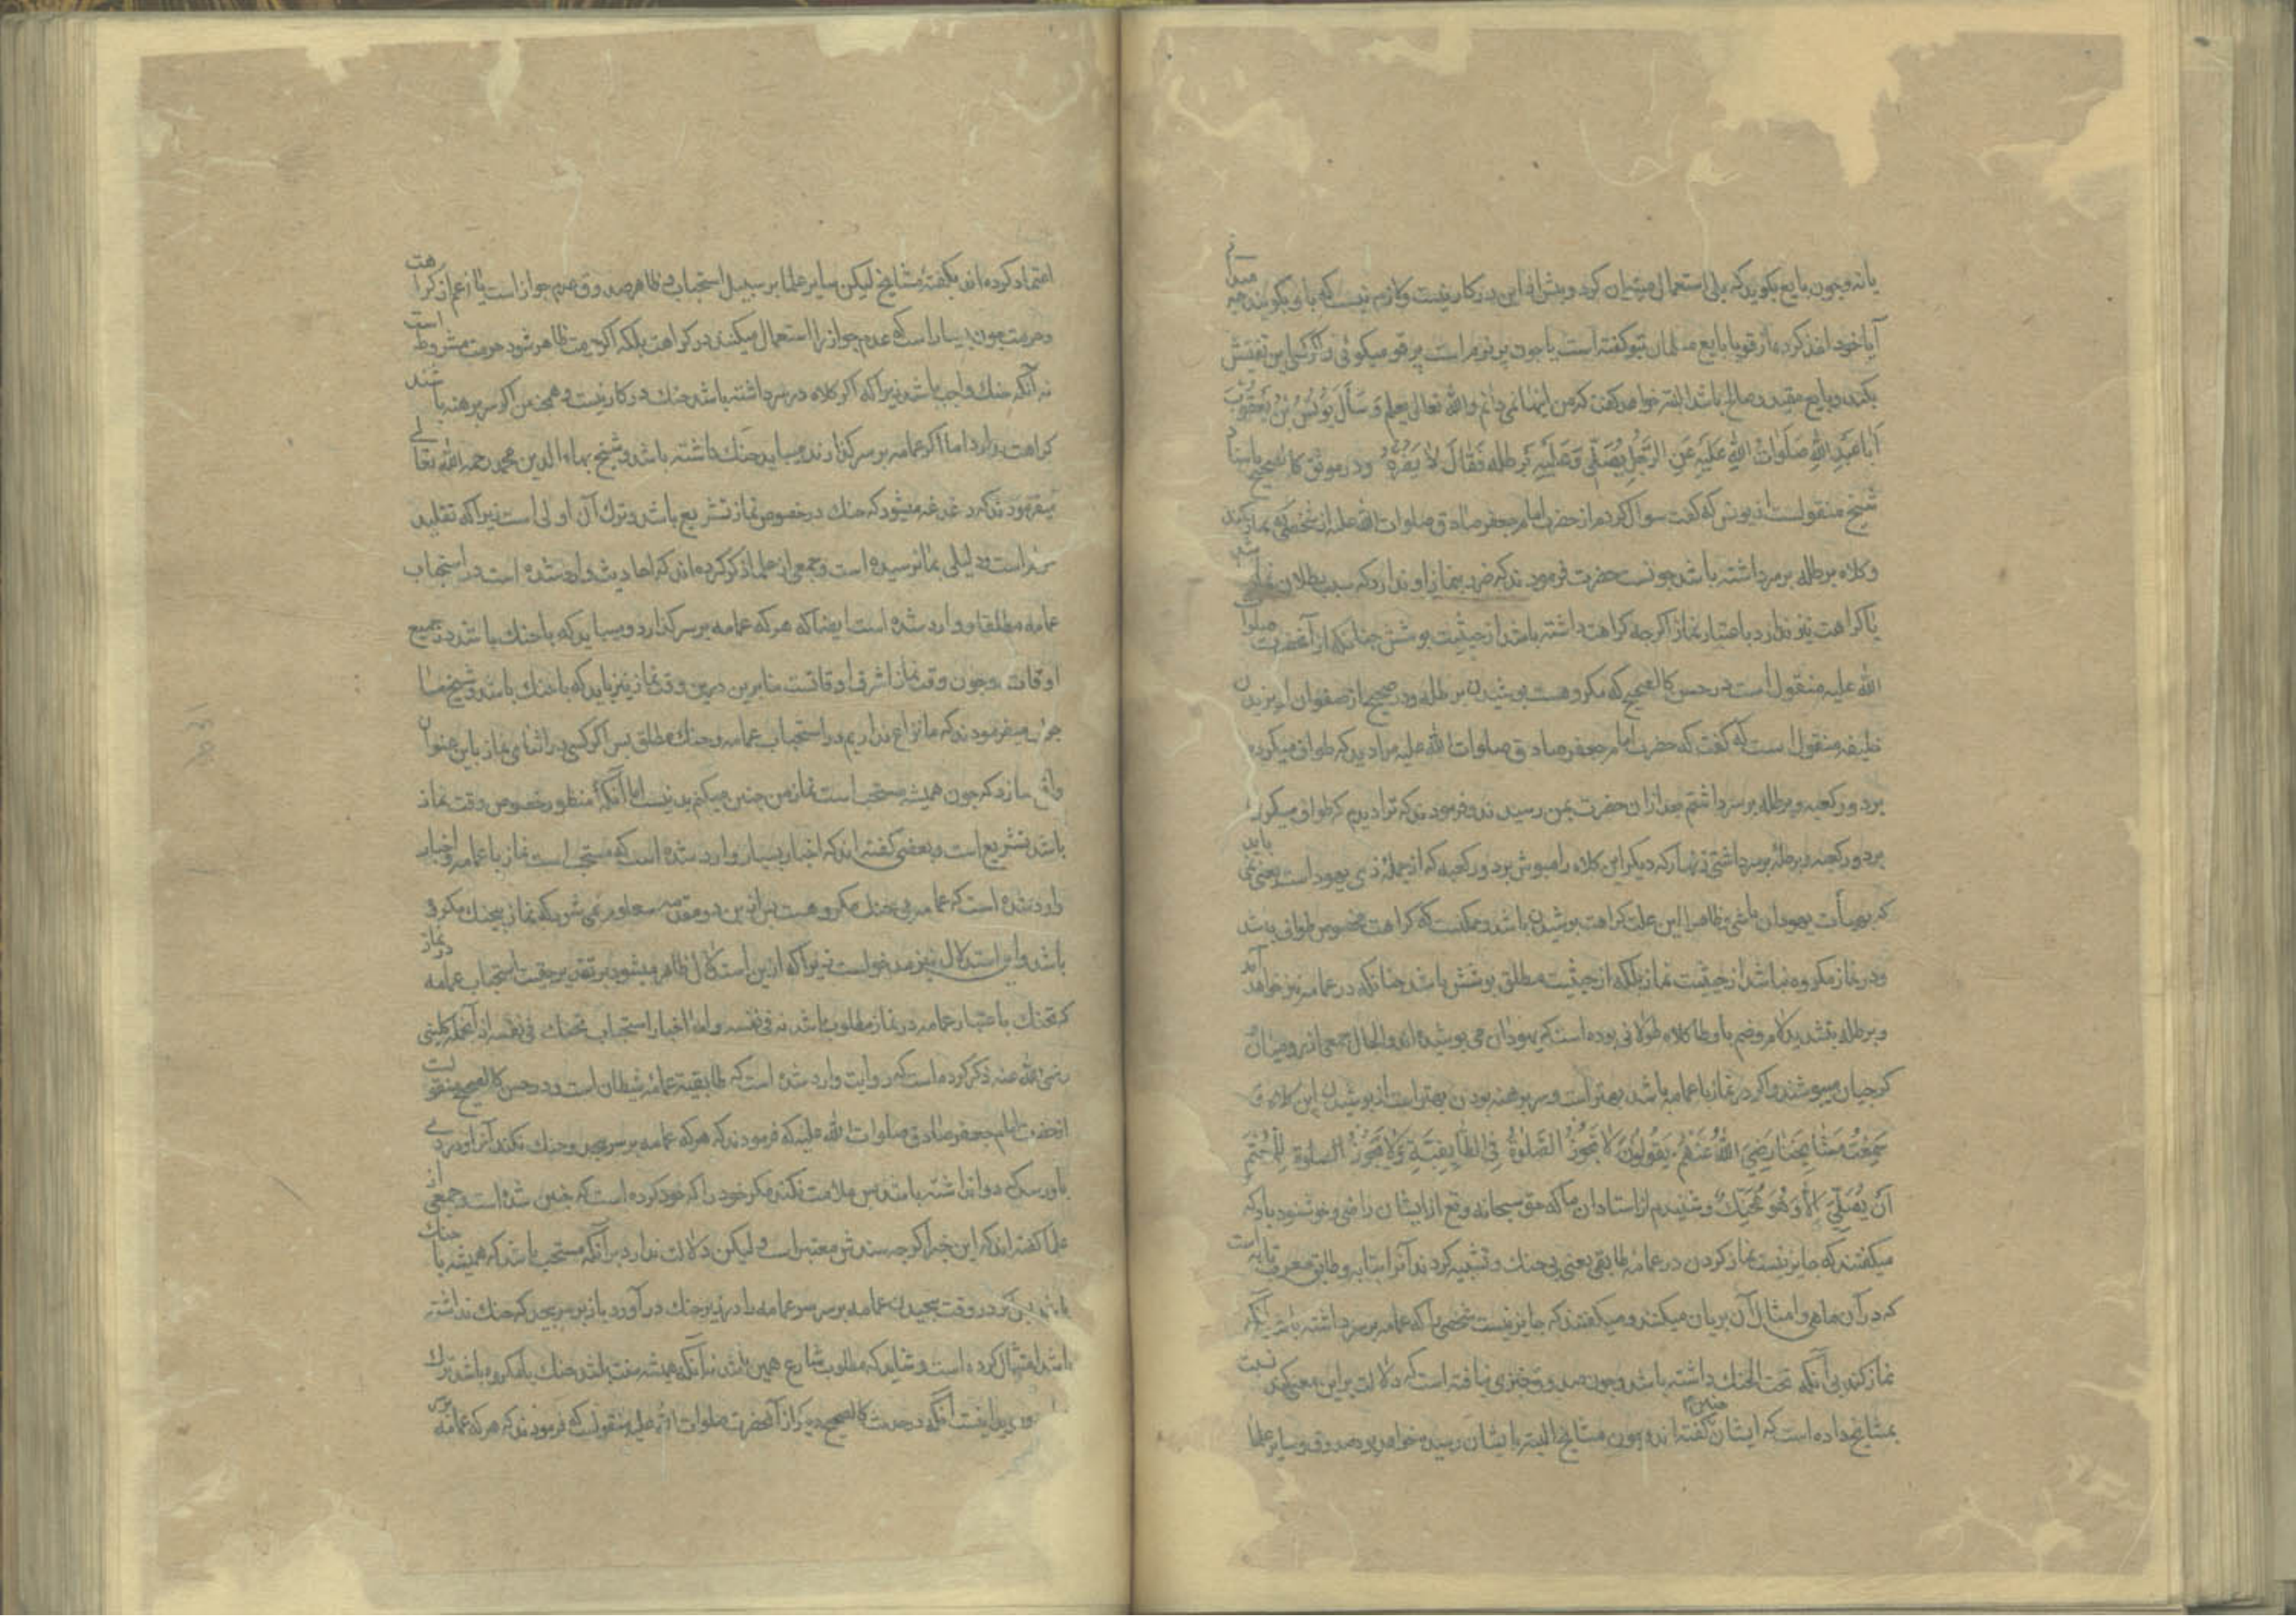 یا نه و چون بایع بگوید که بلی استعمال میتوان کرد و بیش از این در کار نیست و لازم نیست که باو بگویند چه میدانی
آیا خود اخذ کرده از قو یا بایع مسلمان بتو گفته است یا چون پر نرم است پر قو میگوئی و اگر کسی این تفتیش
بکند و بایع مقید و صالح باشد البته خواهد گفت که من اینها نمی دانم والله تعالی یعلم وَ سَأَلَ یُونُسُ بْنُ یَعْقُوبَ
أَبَا عَبْدِ اللهِ صَلَوَاتُ اللهِ عَلَیْهِ عَنِ الرَّجُلِ یُصَلِّی وَ عَلَیْهِ بُرْطُلَه فَقَالَ لَا یَضُرُّهُ و در موثق کالصحیح باسناد
شیخ منقولست از یونس که گفت سوال کردم از حضرت امام جعفر صادق صلوات الله علیه از شخصی که نماز کند
و کلاه برطله بر سر داشته باشد چونست حضرت فرمودند که ضرر بنماز او ندارد که سبب بطلان نماز شود
یا کراهت نیز ندارد باعتبار نماز اگرچه کراهت داشته باشد از حیثیت پوشش چنانکه از آنحضرت صلوات
الله علیه منقول است در حسن کالصحیح که مکروهست پوشیدن برطله و در صحیح از صفوان از یزید بن
خلیفه منقول است که گفت که حضرت امام جعفر صادق صلوات الله علیه مرا دید که طواف میکردم
بر دور کعبه و برطله بر سر داشتم بعد از آن حضرت بمن رسیدند و فرمودند که ترا دیدم که طواف میکردی
بر دور کعبه و برطله بر سر داشتی زنهار که دیگر این کلاه را مپوش بر دور کعبه که از جمله زی یهود است یعنی نمی باید
که بهیأت یهودان باشی و ظاهرا این علت کراهت پوشیدن باشد و ممکنست که کراهت مخصوص طواف باشد
و در نماز مکروه نباشد از حیثیت نماز بلکه از حیثیت مطلق پوشش باشد چنانکه در عمامه نیز خواهد آمد
و برطله بتشدید لام و ضم با و طا کلاه طولانی بوده است که یهودان می پوشیده اند والحال جمعی از رومیان
گرجیان میپوشند و اگر در نماز با عمامه باشد بهتر است و سر برهنه بودن بهتر است از پوشیدن این کلاه وَ
سَمِعْتُ مَشَایِخَنَا رَضِیَ اللهُ عَنْهُمْ یَقُولُونَ لَا تَجُوزُ الصَّلوٰةُ فِی الطَّابِقِیَّةِ وَ لَا یَجُوزُ الصلوة لِلْمُعْتَمِّ
أَنْ یُصَلِّیَ إِلَّا وَ هُوَ مُحَنَّکٌ و شنیدم از استادان ما که حق سبحانه و تع از ایشان راضی و خوشنود باد که
میگفتند که جایز نیست نماز کردن در عمامه طابقی یعنی بی حنک و تشبیه کردند آنرا بتابه و طابق معرب تابه است
که در آن ماهی و امثال آن بریان میکنند و میگفتند که جایز نیست شخصی را که عمامه بر سر داشته باشد آنکه
نماز کند بی آنکه تحت الحنک داشته باشد و چون صدوق خبری نیافته است که دلالت بر این معنی کند نسبت
بمشایخ داده است که ایشان چنین گفته اند و چون مشایخ البته بایشان رسیده خواهد بود صدوق و سایر علما
اعتماد کرده اند بگفته مشایخ لیکن سایر علما بر سبیل استحباب و ظاهر صدوق عدم جواز است یا اعم از کراهت
و حرمت چون بسیار است که عدم جواز را استعمال میکنند در کراهت بلکه اگر حرمت ظاهر شود حرمت مشروط است
نه آنکه حنک واجب باشد زیرا که اگر کلاه در سر داشته باشد حنک در کار نیست و همچنین اگر سر برهنه باشند
کراهت ندارد اما اگر عمامه بر سر گذارند میباید حنک داشته باشد و شیخ بهاء الدین محمد رحمه الله تعالی
میفرمودند که دغدغه میشود که حنک در خصوص نماز تشریع باشد و ترک آن اولی است زیرا که تقلید
است و دلیلی بما نرسیده است و جمعی از علما ذکر کرده اند که احادیث وارد شده است در استحباب
عمامه مطلقا و وارد شده است ایضا که هر که عمامه بر سر گذارد و میباید که با حنک باشد در جمیع
اوقات و چون وقت نماز اشرف اوقاتست بنابرین درین وقت نماز نیز باید که با حنک باشد و شیخ ما
جواب میفرمودند که ما نزاع نداریم در استحباب عمامه و حنک مطلق پس اگر کسی در اثنای نماز باین عنوان
واقع سازد که چون همیشه مستحب است نماز من چنین میکنم بد نیست اما آنکه منظور خصوص وقت نماز
باشد تشریع است و بعضی گفته اند که اخبار بسیار وارد شده است که مستحب است نماز با عمامه و اخبار
وارد شده است که عمامه بی حنک مکروهست پس ازین دو مقدمه معلوم می شود که نماز بیحنک مکروه
باشد و این استدلال نیز مدخولست زیرا که ازین استدلال ظاهر میشود بر تقدیر حقیت استحباب عمامه در نماز
که تحنک باعتبار عمامه در نماز مطلوب باشد نه فی نفسه و اما اخبار استحباب تحنک فی نفسه از آنجمله کلینی
رضی الله عنه ذکر کرده است که روایت وارد شده است که طابقیة عمامه شیطان است و در حسن کالصحیح منقولست
از حضرت امام جعفر صادق صلوات الله علیه که فرمودند که هر که عمامه بر سر پیچد و حنک نکند آنرا و دردی
باو رسد که دوا نداشته باشد پس ملامت نکند مگر خود را که خود کرده است که چنین شده است و جمعی از
علما گفته اند که این خبر اگرچه سندش معتبر است و لیکن دلالت ندارد بر آنکه مستحب باشد که همیشه با حنک
باشد در وقت پیچیدن عمامه بر سر سر عمامه را در زیر حنک در آورد و باز بر سر پیچد که حنک نداشته
باشد امتثال کرده است و شاید که مطلوب شارع همین باشد نه آنکه همیشه سنت باشد حنک یا مکروه باشد ترک
آنکه در حدیث کالصحیح دیگر از آنحضرت صلوات الله علیه منقولست که فرمودند که هر که عمامه